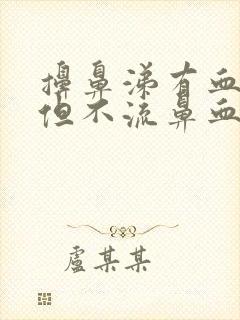 擤鼻涕有血
但不流鼻血
盧某某